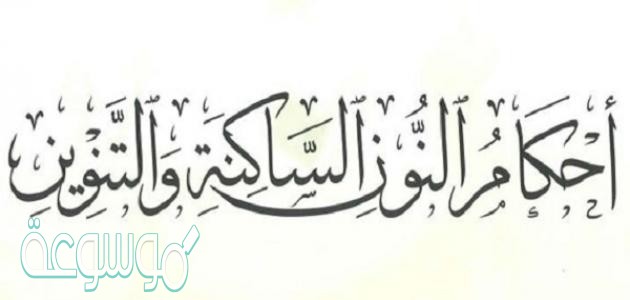 أَحْكَامُ النُّونِ السَّاكِنَةِ وَالتَّنْوِينِ
موسوعة